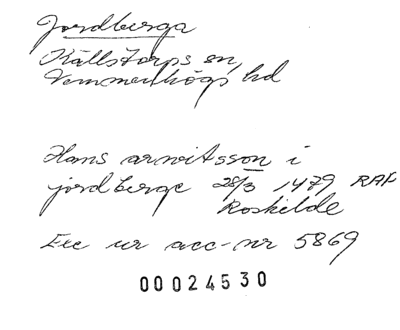 Jordberga
Källstorps sn,
Vemmenhögs hd
Hans arvitsson i
jordberge 28/3 1479 RAP
Roskilde
Exc ur acc-nr 5869
00024530